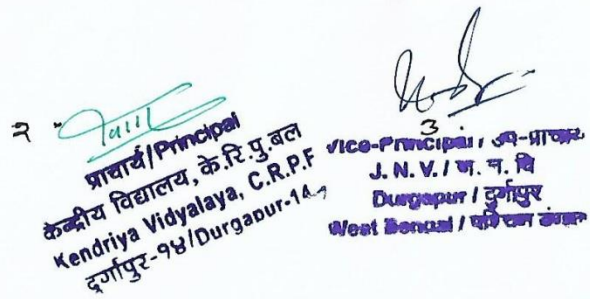 २
प्राचार्य/Principal
केन्द्रीय विद्यालय, के.रि.पु.बल
Kendriya Vidyalaya, C.R.P.F
दुर्गापुर-१४/Durgapur-14
3
Vice-Principal / उप-प्राचार्य
J. N. V. / ज. न. वि
Durgapur / दुर्गापुर
West Bengal / पश्चिम बंगाल